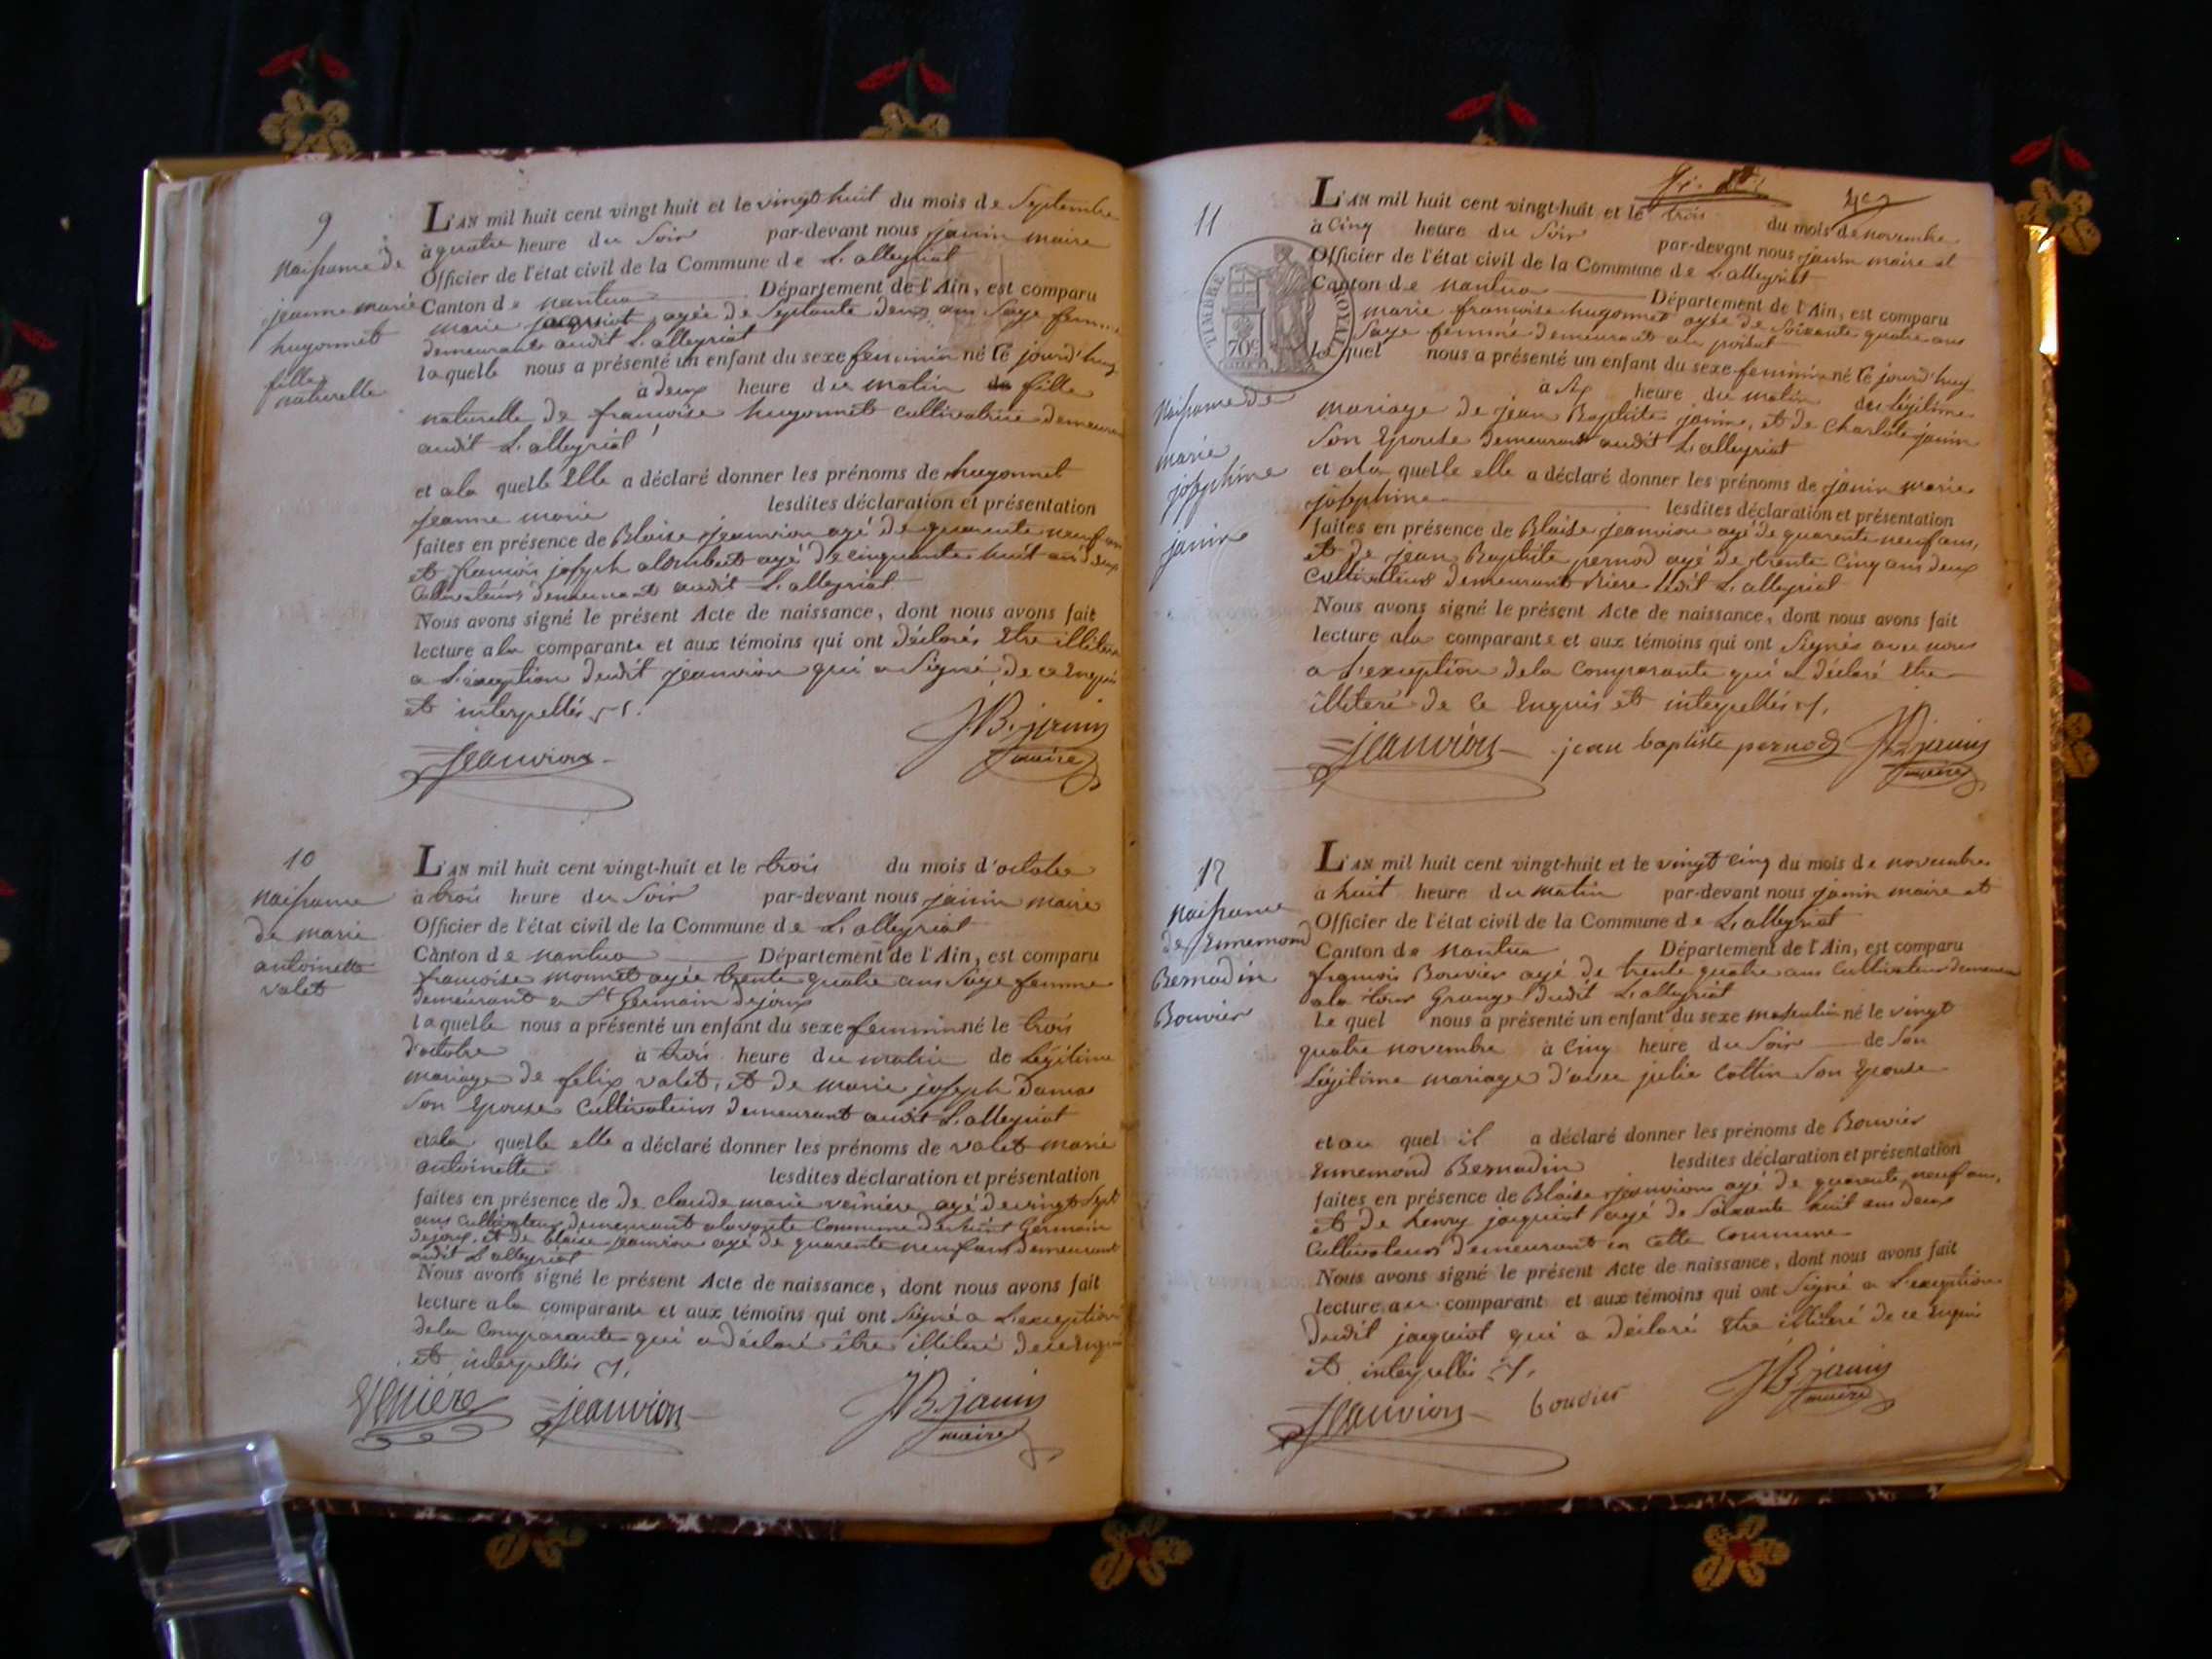 9
Naissance de
jeanne marie
hugonnet
fille
naturelle
L'AN mil huit cent vingt huit et le vingt huit du mois de Septembre
à quatre heure du Soir par-devant nous janin maire
Officier de l'état civil de la Commune de L'alleyriat
Canton de nantua Département de l'Ain, est comparu
marie jacquiot agée de Septante deux ans Sage femme
demeurant audit L'alleyriat
laquelle nous a présenté un enfant du sexe feminin né le jourd'huy
à deux heure du matin fille
naturelle de francoise hugonnet cultivatrice demeurant
audit L'alleyriat
et ala quelle Elle a déclaré donner les prénoms de hugonnet
jeanne marie lesdites déclaration et présentation
faites en présence de Blaise jeanvion agé de quarente neuf ans
et francois joseph alombert agé de cinquante huit ans deux
Cultivateurs demeurant audit L'alleyriat
Nous avons signé le présent Acte de naissance, dont nous avons fait
lecture ala comparante et aux témoins qui ont déclarés Etre illiteré
a L'exception dudit jeanvion qui a Signé de ce Enquis
et interpellés
jeanvion
J.B. janin
maire
10
Naissance
de marie
antoinette
valet
L'AN mil huit cent vingt-huit et le trois du mois d'octobre
à trois heure du Soir par-devant nous janin maire
Officier de l'état civil de la Commune de L'alleyriat
Canton de nantua Département de l'Ain, est comparu
francoise monnet agée trente quatre ans Sage femme
demeurant a St Germain dejoux
laquelle nous a présenté un enfant du sexe feminin né le trois
d'octobre à trois heure du matin de Légitime
mariage de felix valet, et de marie joseph Damas
Son Epouse Cultivateurs demeurant audit L'alleyriat
et ala quelle elle a déclaré donner les prénoms de valet marie
antoinette lesdites déclaration et présentation
faites en présence de de claude marie veiniere agé de vingt Sept
ans cultivateur demeurant alavoute Commune de Saint Germain
dejoux, et de blaise jeanvion agé de quarente neuf ans demeurant
audit L'alleyriat
Nous avons signé le présent Acte de naissance, dont nous avons fait
lecture ala comparante et aux témoins qui ont Signé a L'exception
dela Comparante qui a déclaré être illiteré de ce Enquis
et interpellés
jeanvion
J.B. janin
maire
11
Naissance de
marie
josephine
janin
TIMBRE ROYAL
70c
L'AN mil huit cent vingt-huit et le trois du mois de novembre
à Cinq heure du Soir par-devant nous janin maire et
Officier de l'état civil de la Commune de L'alleyriat
Canton de nantua Département de l'Ain, est comparu
marie francoise hugonnet agée de Soixante quatre ans
Sage femme demeurant au poizat
La quel nous a présenté un enfant du sexe feminin né le jourd'huy
à Six heure du matin du légitime
mariage de jean Baptiste janin, et de Charlote janin
Son Epouse demeurant audit L'alleyriat
et ala quelle elle a déclaré donner les prénoms de janin marie
josephine lesdites déclaration et présentation
faites en présence de Blaise jeanvion agé de quarente neuf ans,
et de jean Baptiste pernod agé de trente Cinq ans deux
Cultivateurs demeurant Riere ledit L'alleyriat
Nous avons signé le présent Acte de naissance, dont nous avons fait
lecture ala comparante et aux témoins qui ont Signés avec nous
a L'exception dela Comparante qui a déclaré Etre
illiteré de Ce Enquis et interpellés
jeanvion jean baptiste pernod J.B. janin
maire
12
Naissance
de Ennemond
Bernadin
Bouvier
L'AN mil huit cent vingt-huit et le vingt Cinq du mois de novembre
à huit heure du matin par-devant nous janin maire et
Officier de l'état civil de la Commune de L'alleyriat
Canton de nantua Département de l'Ain, est comparu
francois Bouvier agé de trente quatre ans Cultivateur demeurant
ala Grange dudit L'alleyriat
Le quel nous a présenté un enfant du sexe masculin né le vingt
quatre novembre à Cinq heure du Soir de Son
Légitime mariage d'avec julie Cottin Son Epouse
et au quel il a déclaré donner les prénoms de Bouvier
Ennemond Bernadin lesdites déclaration et présentation
faites en présence de Blaise jeanvion agé de quarente neuf ans,
et de henry jacquiot agé de Soixante huit ans deux
Cultivateurs demeurant en Cette Commune
Nous avons signé le présent Acte de naissance, dont nous avons fait
lecture au comparant et aux témoins qui ont Signé a L'exception
dudit jacquiot qui a déclaré Etre illiteré de ce Enquis
et interpellés
jeanvion bouvier J.B. janin
maire